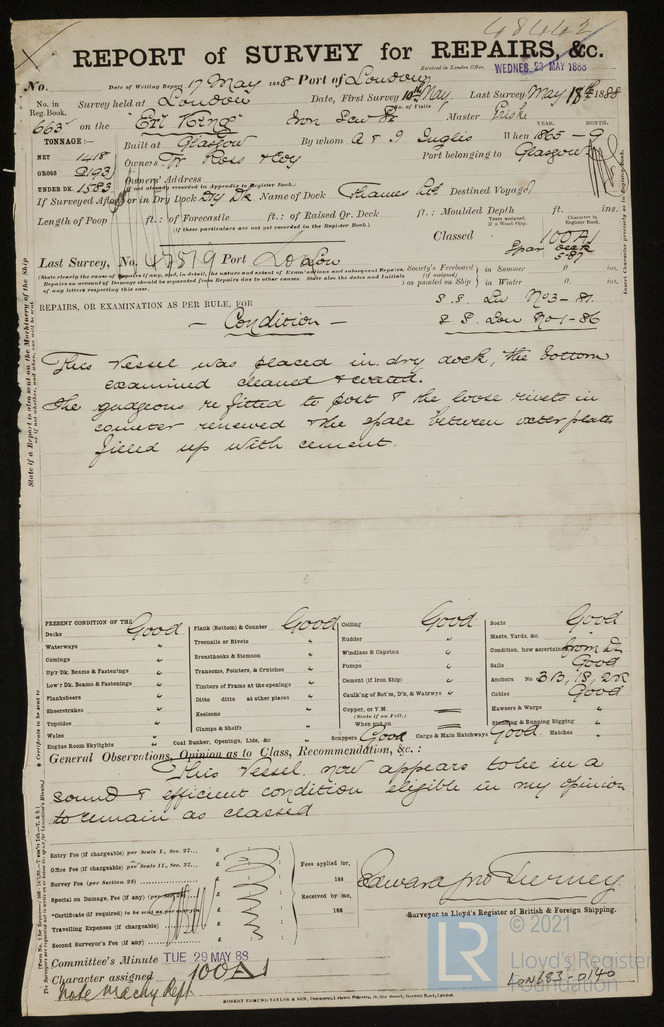 48442
REPORT of SURVEY for REPAIRS, &c.
Received in London Office, WEDNES. 23 MAY 1888
No. Date of Writing Report 17 May 1888 Port of London
No. in Reg. Book. Survey held at London Date, First Survey 10th May, Last Survey May 18th 1888
663 on the "Erl King" Iron Screw Master
TONNAGE:— Built at Glasgow By whom A & J Inglis When 1865 - 9
YEAR. MONTH.
NET 1418
GROSS 2193 Owners Ross & Coy Port belonging to Glasgow
UNDER DK. 1583 Owners' Address
(if not already recorded in Appendix to Register Book.)
If Surveyed Afloat or in Dry Dock Dry Dk Name of Dock Thames Destined Voyage
Length of Poop ft.: of Forecastle ft.: of Raised Qr. Deck ft.: Moulded Depth ft. ins.
(if these particulars are not yet recorded in the Register Book.)
Years assigned, if a Wood Ship. Character in Register Book.
Classed 100A
Spar deck
5-87
Last Survey, No. 47579 Port London
Society's Freeboard (if assigned) as painted on Ship in Summer ft ins.
in Winter ft. ins.
REPAIRS, OR EXAMINATION AS PER RULE, FOR
S. S. No 3 - 81.
S S. Lon No 1 - 86
— Condition —
This Vessel was placed in dry dock, the bottom
examined cleaned & coated.
The gudgeons refitted to post & the loose rivets in
counter renewed & the space between outer plates
filled up with cement.
PRESENT CONDITION OF THE
Decks Good
Waterways "
Comings "
Up'r Dk. Beams & Fastenings "
Low'r Dk. Beams & Fastenings "
Planksheers "
Sheerstrakes "
Topsides "
Wales "
Engine Room Skylights "
Plank (Bottom) & Counter Good
Treenails or Rivets "
Breasthooks & Stemson "
Transoms, Pointers, & Crutches "
Timbers of Frame at the openings "
Ditto ditto at other places "
Keelsons "
Clamps & Shelfs "
Coal Bunker, Openings, Lids, &c "
Ceiling Good
Rudder "
Windlass & Capstan "
Pumps "
Cement (if Iron Ship) "
Caulk'ng of Bot'm, D'k, & Watrways "
Copper, or Y.M.
(State if on Felt.)
When put on
Scuppers Good Cargo & Main Hatchways Good. Hatches "
Boats Good
Masts, Yards, &c.
Condition, how ascertained from Dk
Sails Good
Anchors No. 3 B, 1 S, 2 K
Cables Good
Hawsers & Warps "
Standing & Running Rigging "
General Observations, Opinion as to Class, Recommendation, &c.:
This Vessel now appears to be in a
sound & efficient condition eligible in my opinion
to remain as classed
Entry Fee (if chargeable) per Scale I., Sec. 27... £ : :
Office Fee (if chargeable) per Scale II., Sec. 27... £
Survey Fee (per Section 28) £
Special on Damage, Fee (if any) £
*Certificate (if required) £
Travelling Expenses (if chargeable) £
Second Surveyor's Fee (if any) £
Fees applied for, 188
Received by me, 188
Edward Jno Tierney.
Surveyor to Lloyd's Register of British & Foreign Shipping.
Committee's Minute TUE 29 MAY 88
Character assigned 100A
Note Machy Rept
LON683-0140
ROBERT EDMUND TAYLOR & SON
© 2021
LR Lloyd's Register
Foundation